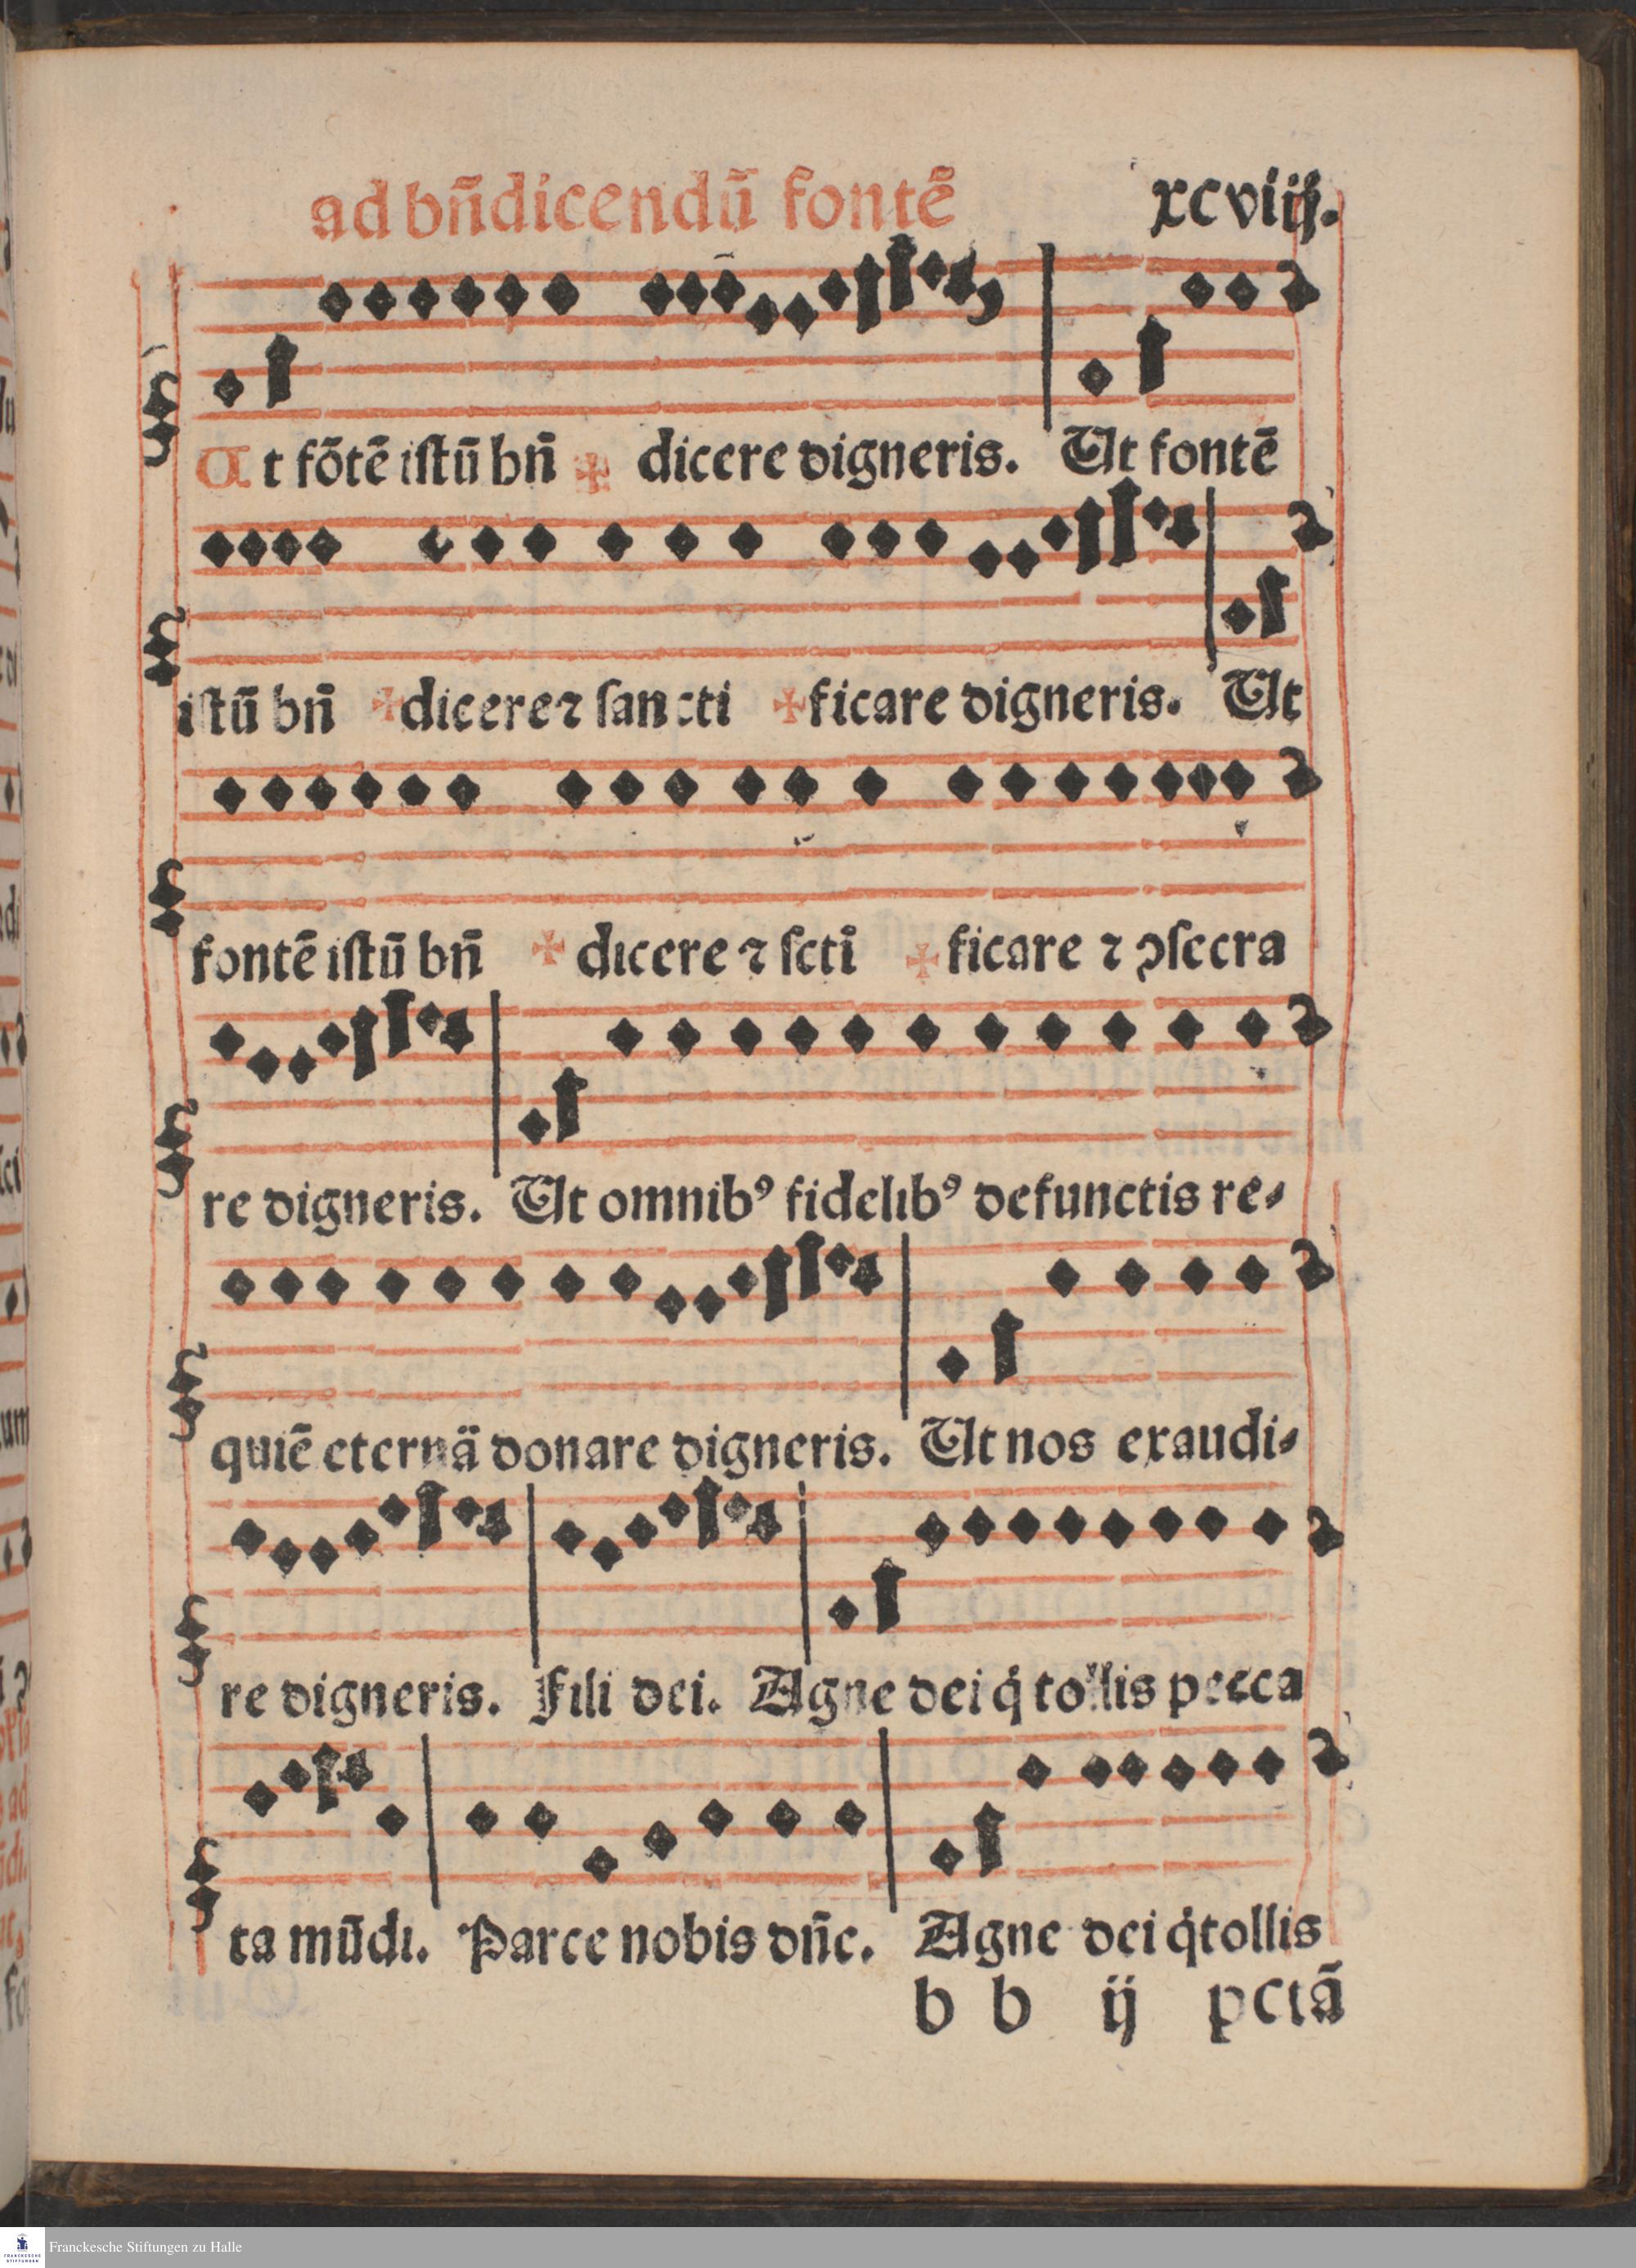 ad bñdicendū fontē xcviij.
Ut fōtē istū bñ ✠ dicere digneris. Ut fontē
istū bñ ✠ dicere ⁊ sancti ✠ ficare digneris. Ut
fontē istū bñ ✠ dicere ⁊ scti ✠ ficare ⁊ ↄsecra
re digneris. Ut omnibꝰ fidelibꝰ defunctis re⸗
quiē eternā donare digneris. Ut nos exaudi⸗
re digneris. Fili dei. Agne dei q̇ tollis pecca
ta mūdi. Parce nobis dñe. Agne dei q̇ tollis
b b ij pctā
Franckesche Stiftungen zu Halle